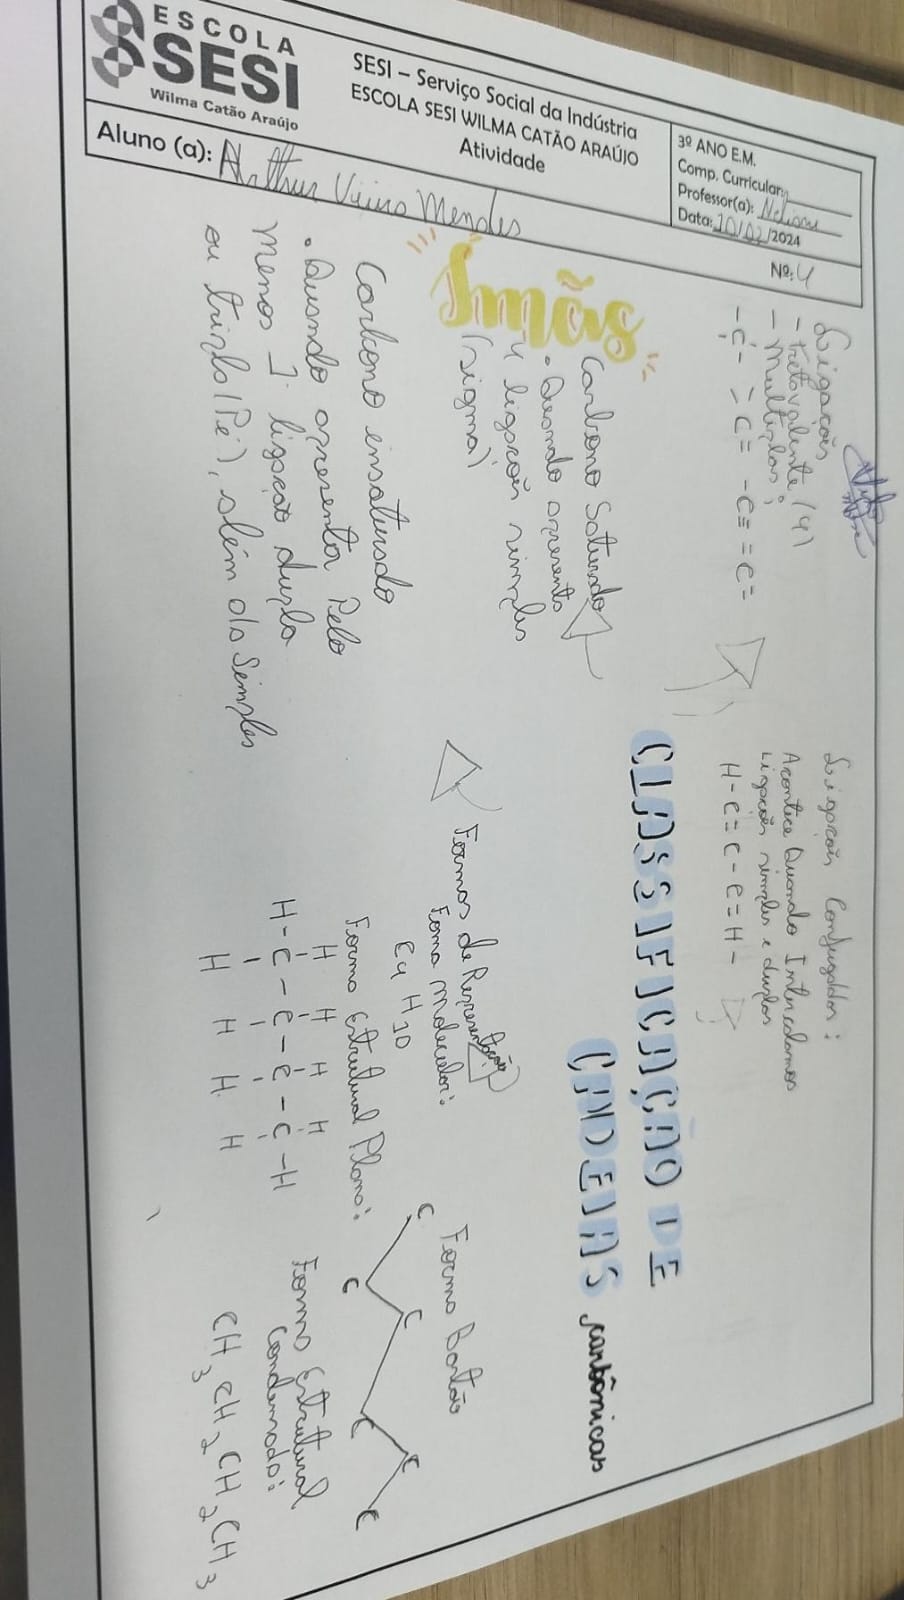 ESCOLA
SESI
Wilma Catão Araújo
SESI – Serviço Social da Indústria
ESCOLA SESI WILMA CATÃO ARAÚJO
Atividade
3º ANO E.M.
Comp. Curricular:
Professor(a):
Data: 10/02/2024
Nº: 4
Aluno (a): Arthur Mendes
Ligações
- tretavalente (4)
- Multiplas:
-C- >C= -C≡ =C=
Ligações Conjugadas:
Acontice Quando Intercalamos
Ligações simples e duplas
H-C=C-C=H-
CLASSIFICAÇÃO DE
CADEIAS carbônicas
Carbono Saturado
• Quando apresenta
4 ligações simples
(sigma)
Carbono ensaturado
• Quando apresentar Pelo
menos 1 ligação dupla
ou tripla (Pi), além da Simples
Formas de Representação
Foma molecular:
C4 H10
Forma Estrutural Plana:
H H H H
H-C-C-C-C-H
H H H H
Forma Bastão
C C C
C C C
Forma Estrutural
Condensada:
CH3CH2CH2CH3